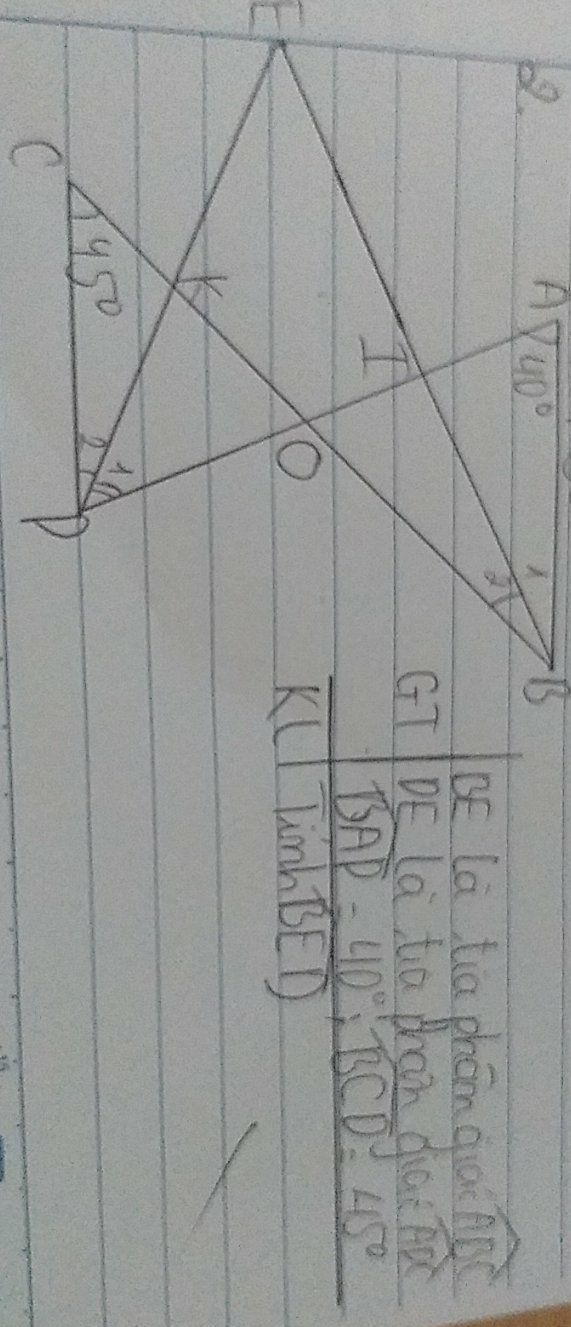 2.
E
A
40°
I
1
2
B
C
45°
K
O
1
2
D
GT
BE là tia phân giác ABC
DE là tia phân giác ADC
BAD = 40°; BCD = 45°
KL
Tính BED